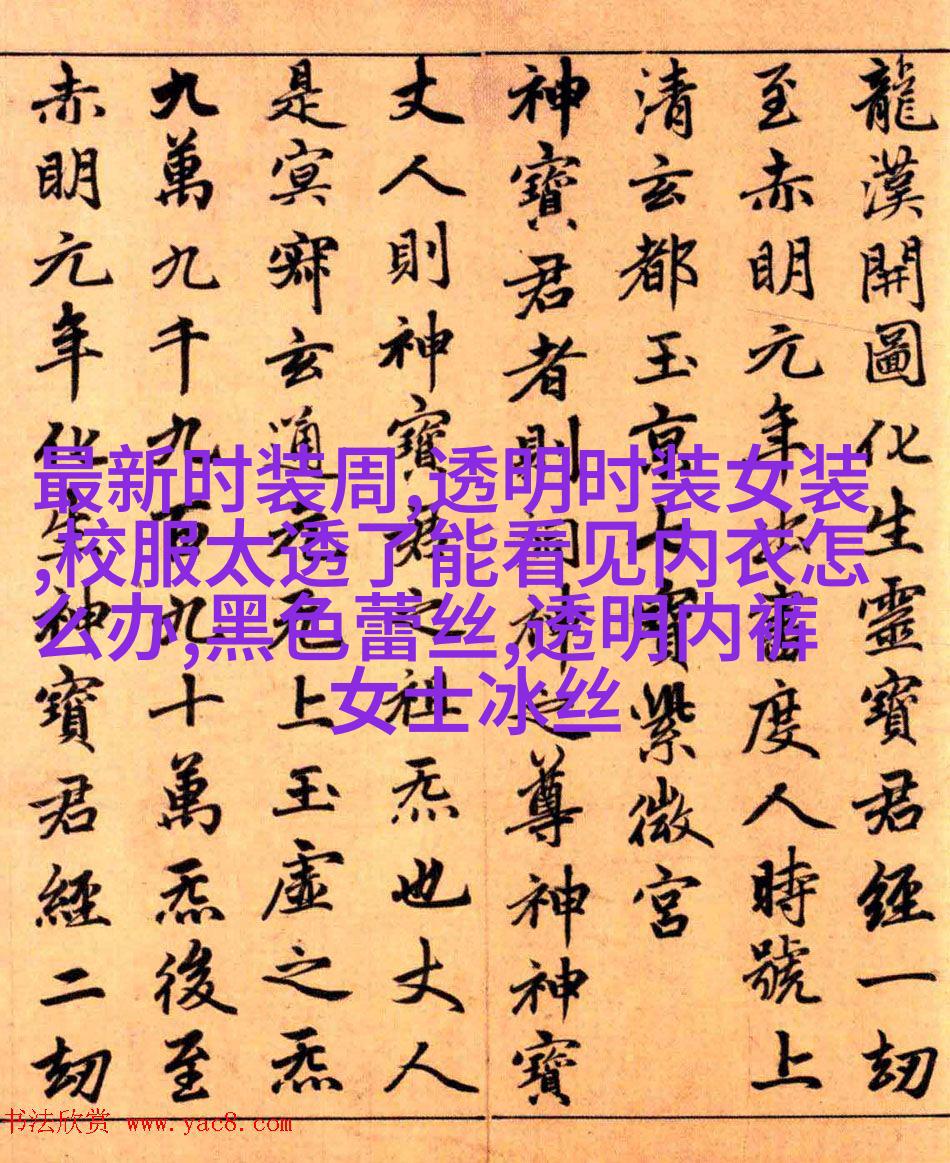 龍漢開圖化生靈寶君經一劫
至赤明元年出書度人時號上
清玄都玉京七寶紫微宮
神寶君者則洞神之尊神神寶
丈人則神寶君之祖炁也丈人
是冥寂玄通元上玉虛之炁
九萬九千九百九十萬炁後至
赤明元年化生神寶君經二劫
最新时装周,透明时装女装
,校服太透了能看见内衣怎
么办,黑色蕾丝,透明内裤
女士冰丝
书法欣赏 www.yac8.com